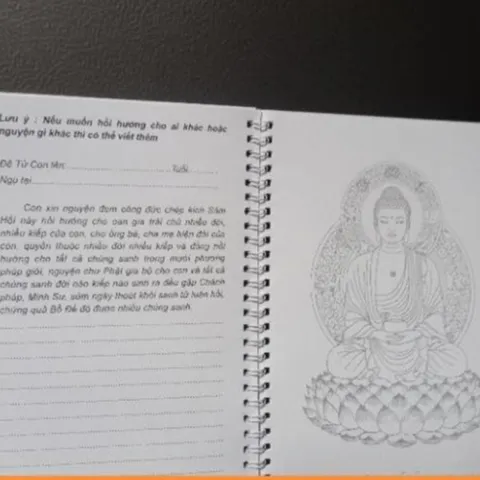 Lưu ý : Nếu muốn hồi hướng cho ai khác hoặc
nguyện gì khác thì có thể viết thêm
Đệ Tử Con tên: Tuổi
Ngụ tại
Con xin nguyện đem công đức chép kinh Sám
Hối này hồi hướng cho oan gia trái chủ nhiều đời,
nhiều kiếp của con, cho ông bà, cha mẹ hiện đời của
con, quyến thuộc nhiều đời nhiều kiếp và đồng hồi
hướng cho tất cả chúng sanh trong mười phương
pháp giới, nguyện nhờ Phật gia hộ cho con và tất cả
chúng sanh đời nào kiếp nào sinh ra đều gặp Chánh
pháp, Minh Sư, sớm ngày thoát khỏi sanh tử luân hồi,
chứng quả Bồ Đề độ được nhiều chúng sanh.